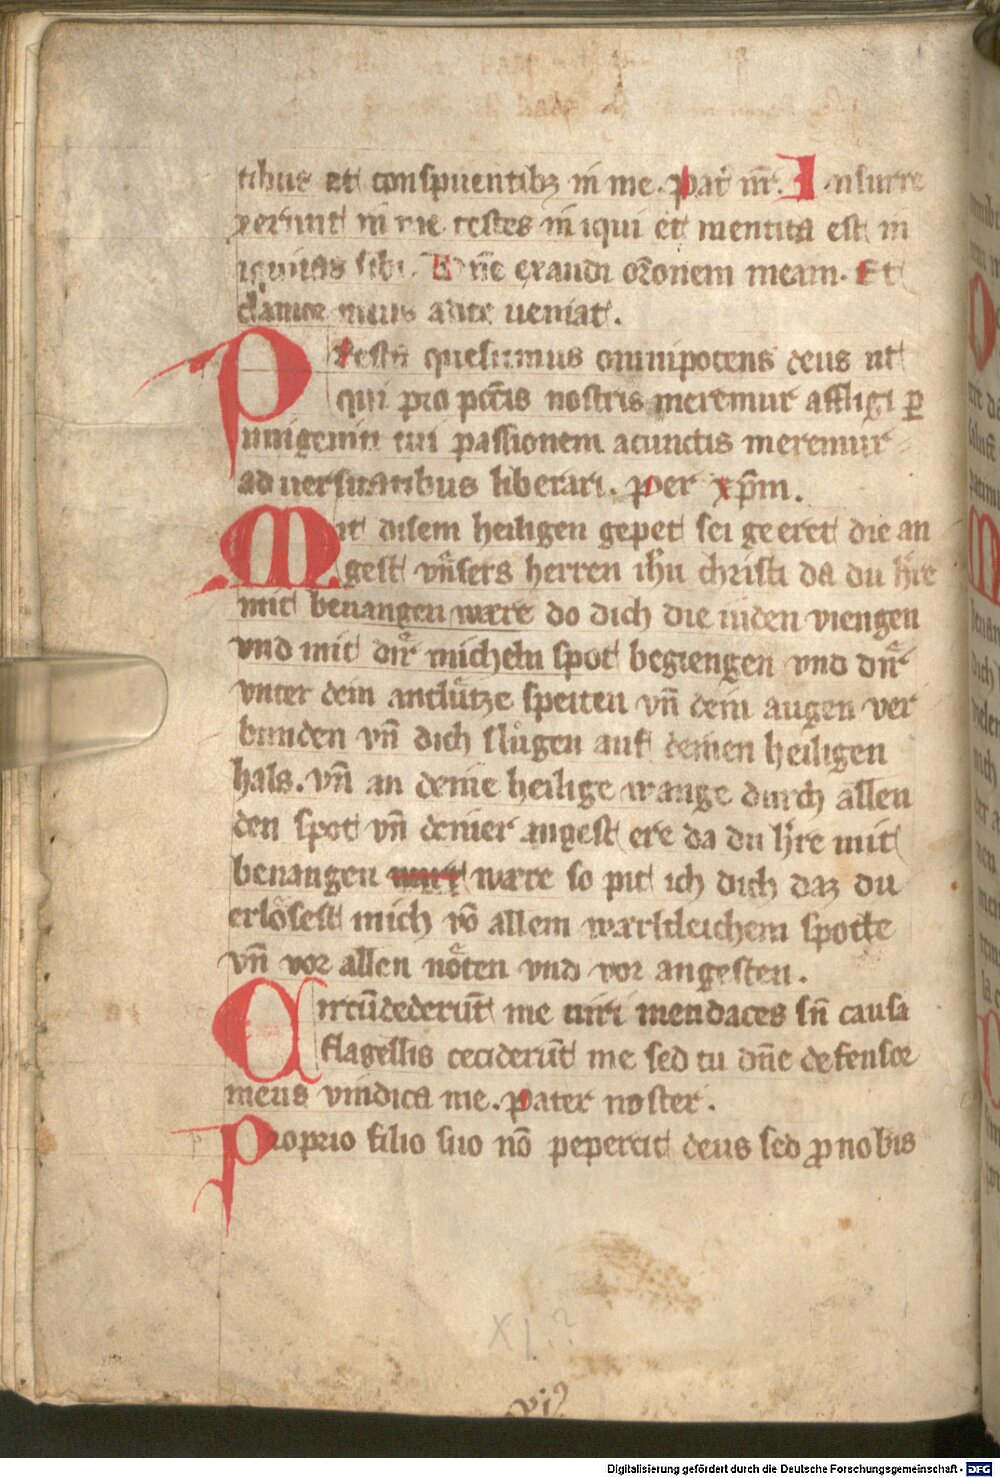 tibus et conspuentibꝫ in me. pat̄ nr̄. Insurre
xerunt in me testes in iqui et mentita est in
iquitas sibi. Dn̄e exaudi or̄onem meam. Et
clamor meus adte ueniat.
Presta quesumus omnipotens deus ut
qui pro pcc̄is nostris meremur affligi ꝑ
unigeniti tui passionem acunctis meremur
ad uersitatibus liberari. per xp̄m.
Mit disem heiligen gepet sei geeret die an
gest vn̄sers herren ih̄u christi da du h̄re
mit beuangen wære do dich die iuden viengen
vnd mit dir micheln spot begiengen vnd dir
vnter dein antlütze speiten vn̄ dein augen ver
bunden vn̄ dich slůgen auf deinen heiligen
hals. vn̄ an deine heilige wange durch allen
den spot vn̄ deiner angest ere da du h̄re mit
beuangen wære so pit ich dich daz du
erlösest mich vō allem wærltleichem spotte
vn̄ vor allen nöten vnd vor angesten.
Circūdederūt me uiri mendaces sn̄ causa
flagellis ceciderūt me sed tu dn̄e defensor
meus vindica me. pater noster.
Proprio filio suo nō pepercit deus sed ꝓ nobis
XI.?
xi?
Digitalisierung gefördert durch die Deutsche Forschungsgemeinschaft - DFG